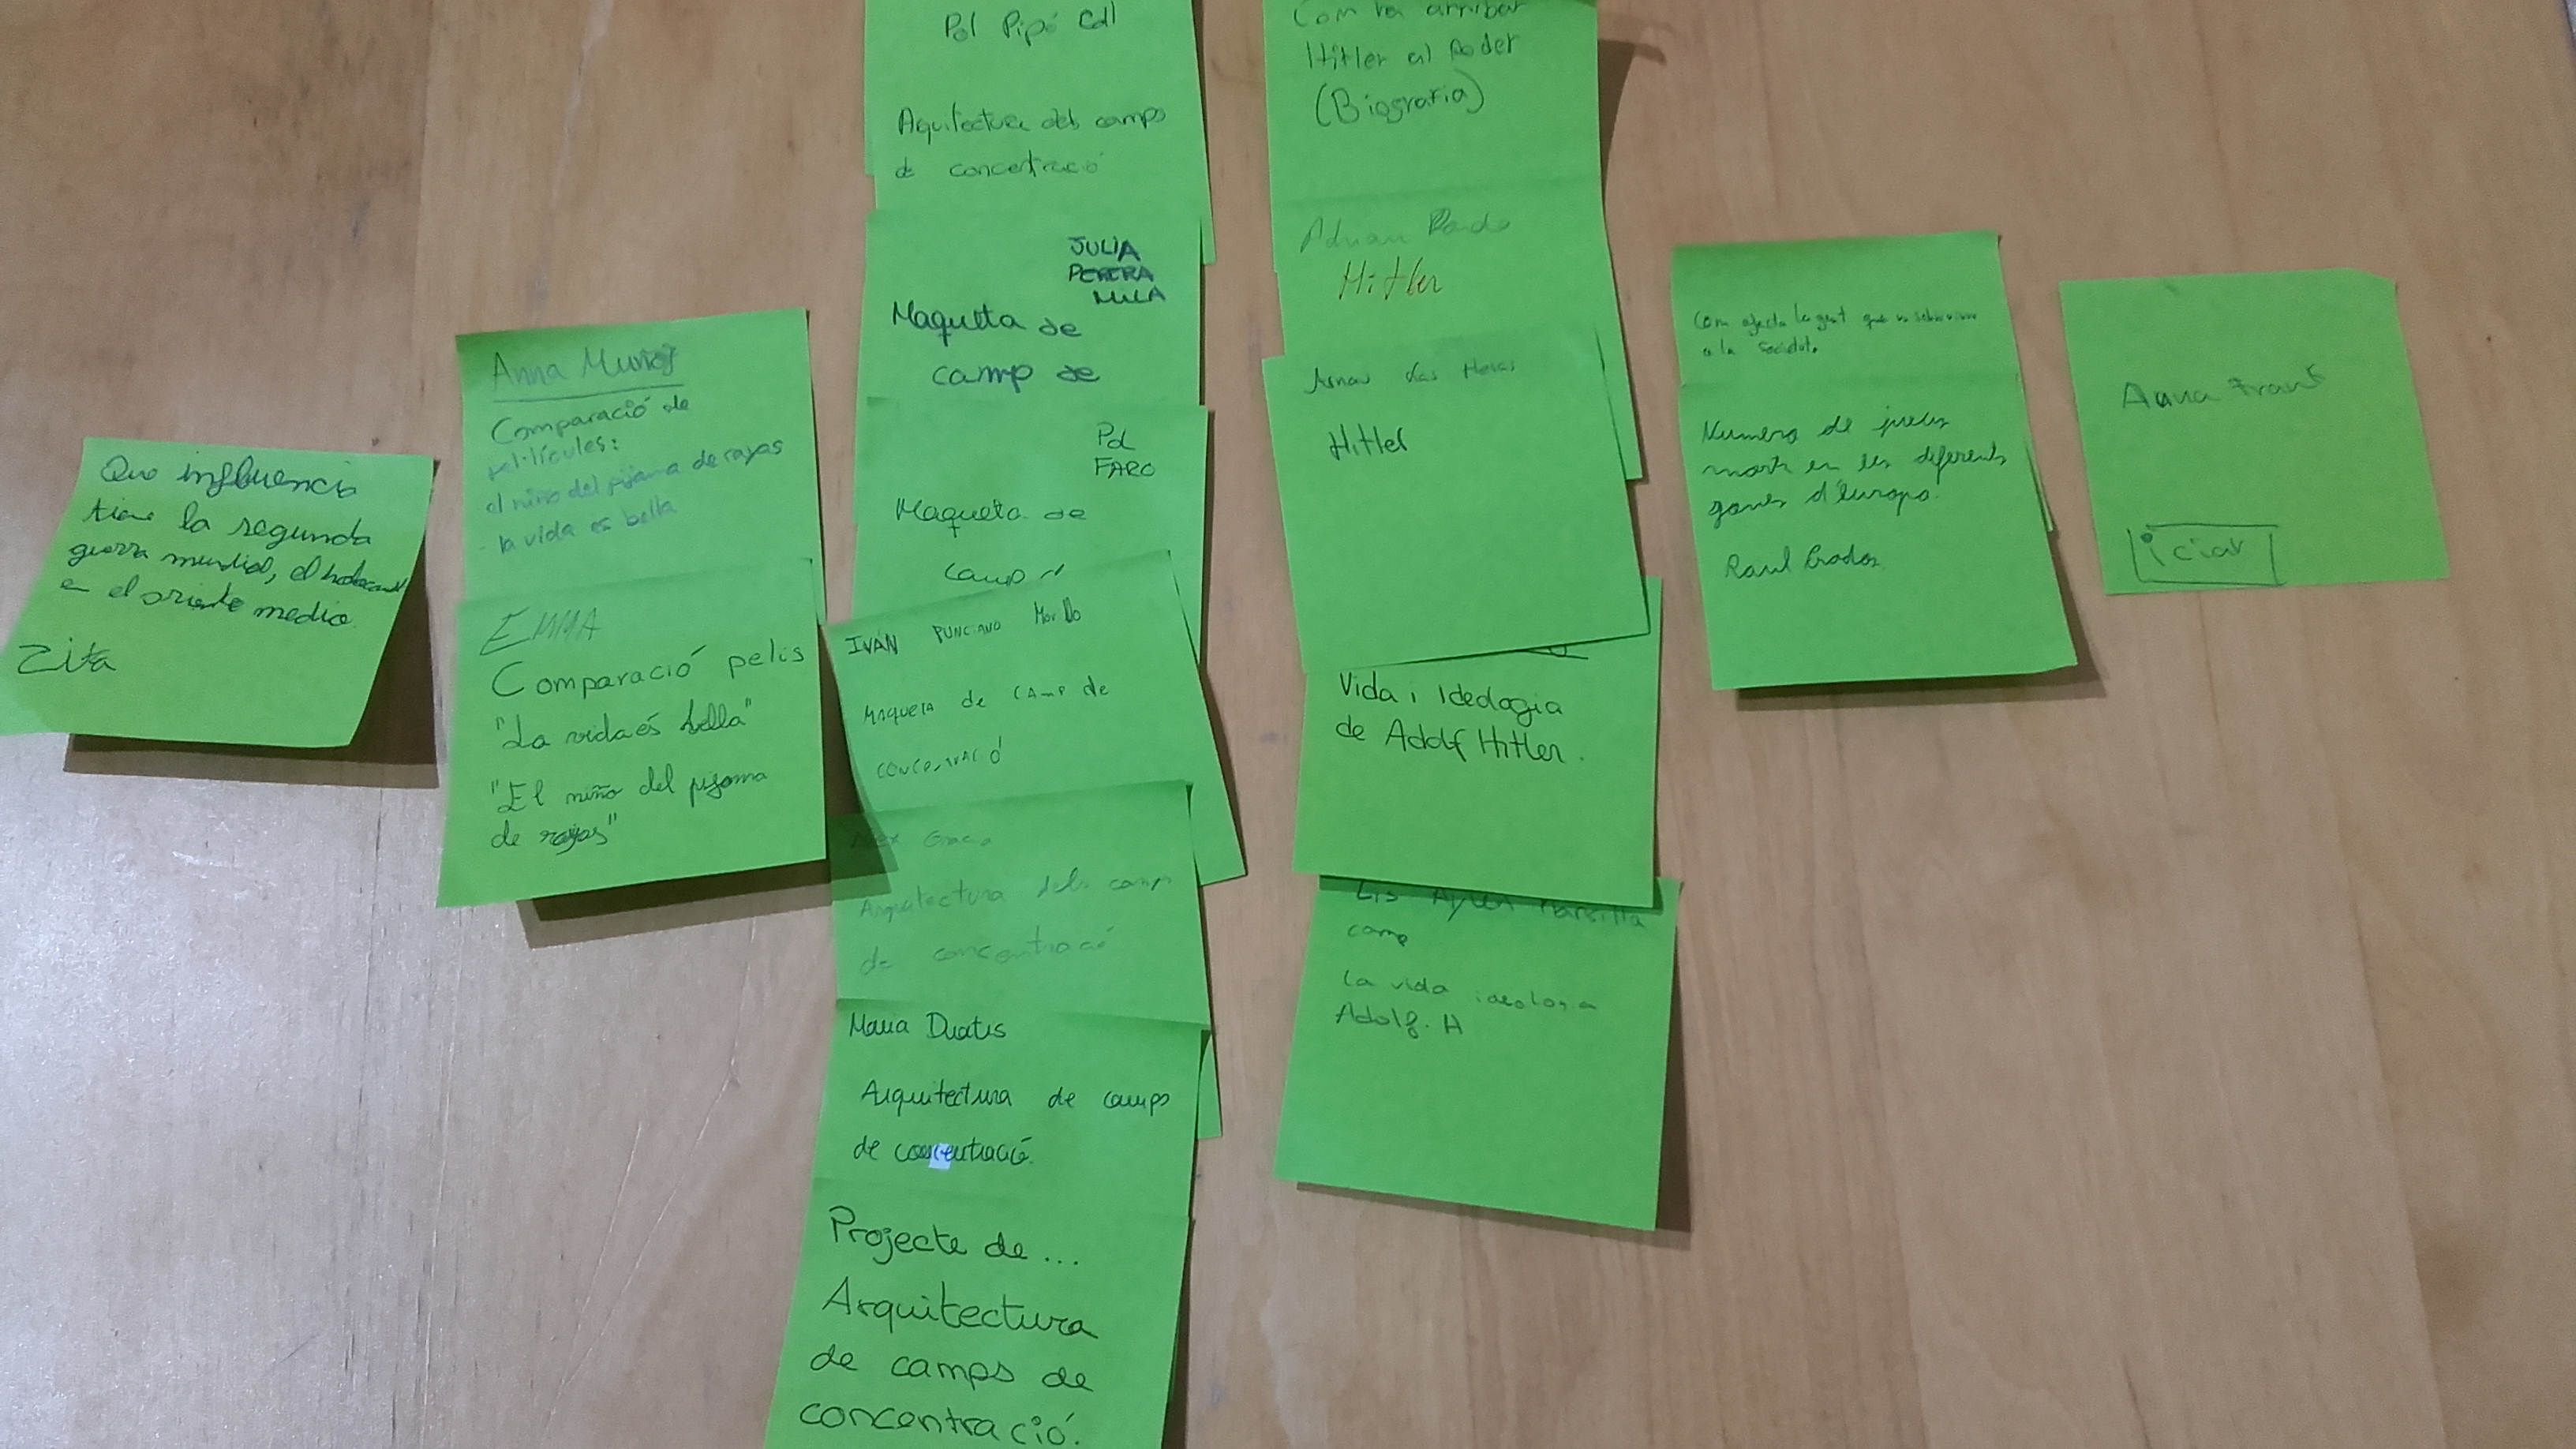 Que influencia
tiene la segunda
guerra mundial, el
en el oriente medio.
Zita
Anna Muñoz
Comparació de
pel·lícules:
el niño del pijama de rayas
- la vida es bella
EMMA
Comparació pelis
"La vida és bella"
"El niño del pijama
de rayas"
Pol Pipó Coll
Aquitectura dels camps
de concentració
JULIA
PERERA
MILA
Maqueta de
camp de
Pol
FARO
Maqueta de
camp
IVÁN PUNCIANO
MAQUETA de CAMP de
Arquitectura dels camps
de concentració
Maria Duatis
Arquitectura de camps
de concentració.
Projecte de...
Arquitectura
de camps de
concentració.
Com va arribar
Hitler al Poder
(Biografia)
Adrian Pardo
Hitler
Arnau
Hitler
Vida i Ideologia
de Adolf Hitler.
camp
La vida ideologia
Adolf. H
Com afecta la gent que
a la societat.
Numero de jueus
morts en les diferents
zones d'europa.
Raul Prados
Anna Frank
iciar